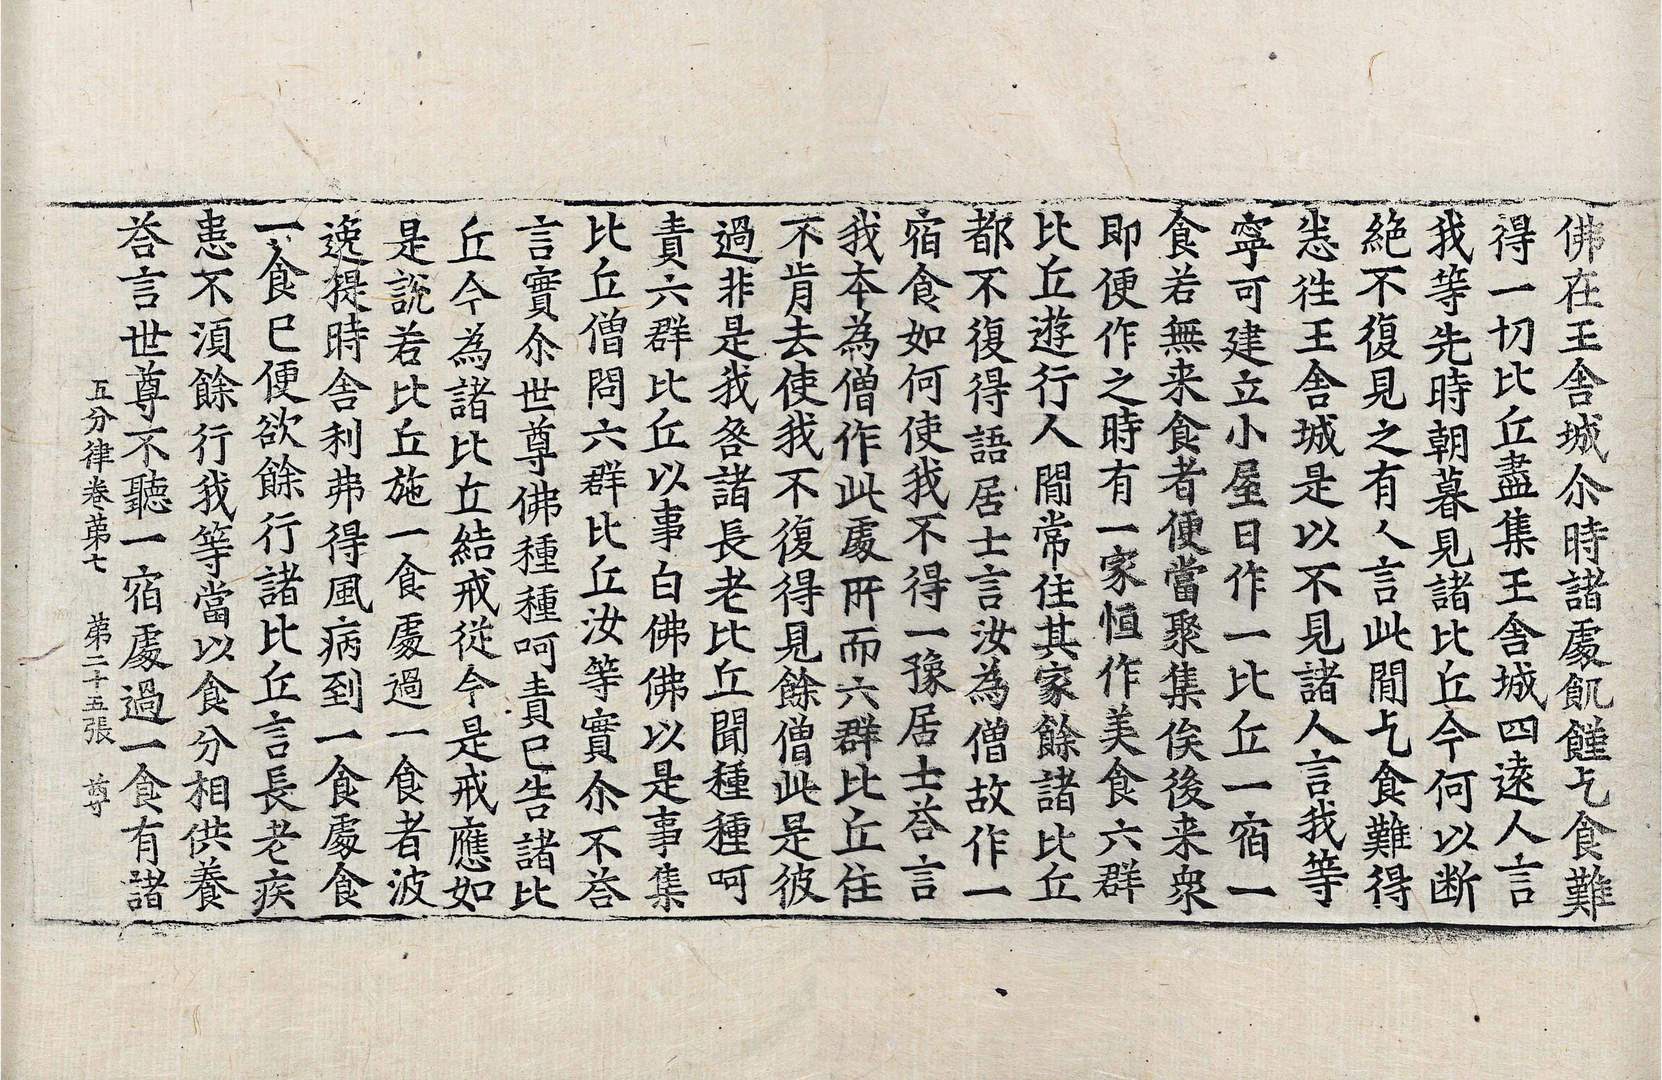 佛在王舍城尒時諸處飢饉乞食難
得一切比丘盡集王舍城四遠人言
我等先時朝暮見諸比丘今何以断
絶不復見之有人言此閒乞食難得
悉徃王舍城是以不見諸人言我等
寧可建立小屋日作一比丘一宿一
食若無来食者便當聚集俟後来衆
即便作之時有一家恒作美食六群
比丘遊行人閒常住其家餘諸比丘
都不復得語居士言汝為僧故作一
宿食如何使我不得一豫居士荅言
我本為僧作此處所而六群比丘住
不肯去使我不復得見餘僧此是彼
過非是我咎諸長老比丘聞種種呵
責六群比丘以事白佛佛以是事集
比丘僧問六群比丘汝等實尒不荅
言實尒世尊佛種種呵責已告諸比
丘今為諸比丘結戒從今是戒應如
是說若比丘施一食處過一食者波
逸提時舎利弗得風病到一食處食
一食已便欲餘行諸比丘言長老疾
患不湏餘行我等當以食分相供養
荅言世尊不聽一宿處過一食有諸
五分律卷第七 第二十五張 尊